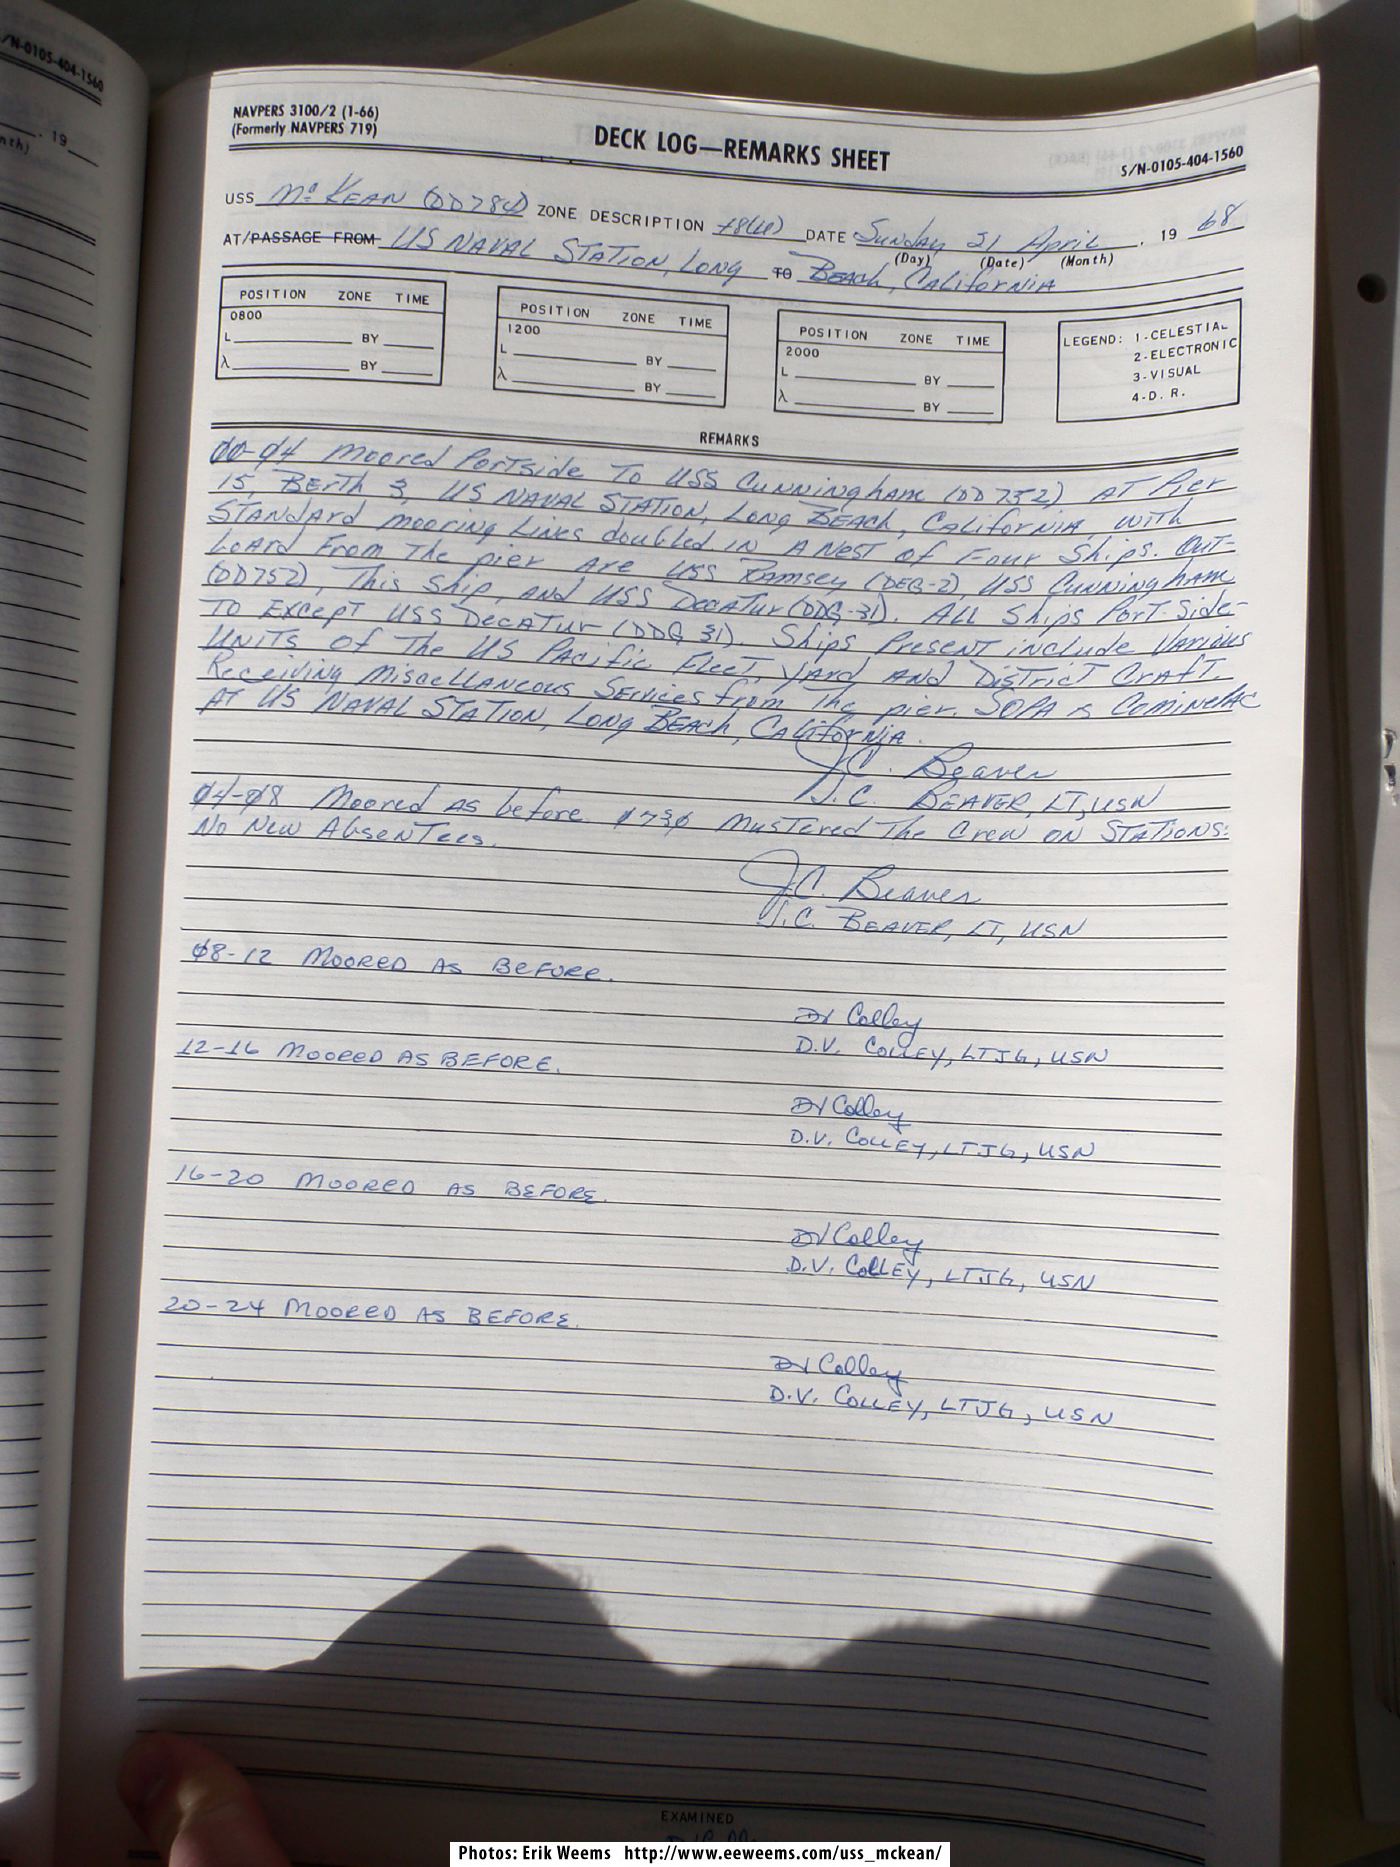 S/N-0105-404-1560
19
nth)
NAVPERS 3100/2 (1-66)
(Formerly NAVPERS 719)
DECK LOG—REMARKS SHEET
S/N-0105-404-1560
USS McKEAN (DD784) ZONE DESCRIPTION +8(U) DATE Sunday 21 April, 19 68
(Day) (Date) (Month)
AT/PASSAGE FROM US NAVAL STATION, Long TO BEAch, CALifornia
POSITION ZONE TIME
0800
L BY
λ BY
POSITION ZONE TIME
1200
L BY
λ BY
POSITION ZONE TIME
2000
L BY
λ BY
LEGEND: 1-CELESTIAL
2-ELECTRONIC
3-VISUAL
4-D. R.
REMARKS
00-04 Moored Portside To USS Cunningham (DD 752) AT Pier
15, BErth 3, US NAVAL STATION, Long BEAch, CALifornia, with
STANdArd mooring Lines doubled in A NEST of Four Ships. Out-
boArd From The pier Are USS Ramsey (DEG-2), USS Cunningham
(DD752), This Ship, and USS DecATur (DDG-31). ALL Ships Port-Side-
To Except USS DecATur (DDG 31). Ships Present include VArious
UNITS of The US PAcific Fleet, YArd AND DisTricT CrafT.
Receiving MiscelLANeous Services from The pier. SOPA is CominePAC
AT US NAVAL STATION, Long BeAch, CALiforNiA.
J.C. Beaver
J.C. BEAVER, LT, USN
04-08 Moored AS before. 0730 MusTered The Crew on STATIONS:
No New AbsenTees.
J.C. Beaver
J.C. BEAVER, LT, USN
08-12 MOORED AS BEFORE.
DV Colley
D.V. COLLEY, LTJG, USN
12-16 MOORED AS BEFORE.
DV Colley
D.V. COLLEY, LTJG, USN
16-20 MOORED AS BEFORE.
DV Colley
D.V. COLLEY, LTJG, USN
20-24 MOORED AS BEFORE.
DV Colley
D.V. COLLEY, LTJG, USN
EXAMINED
Photos: Erik Weems http://www.eeweems.com/uss_mckean/